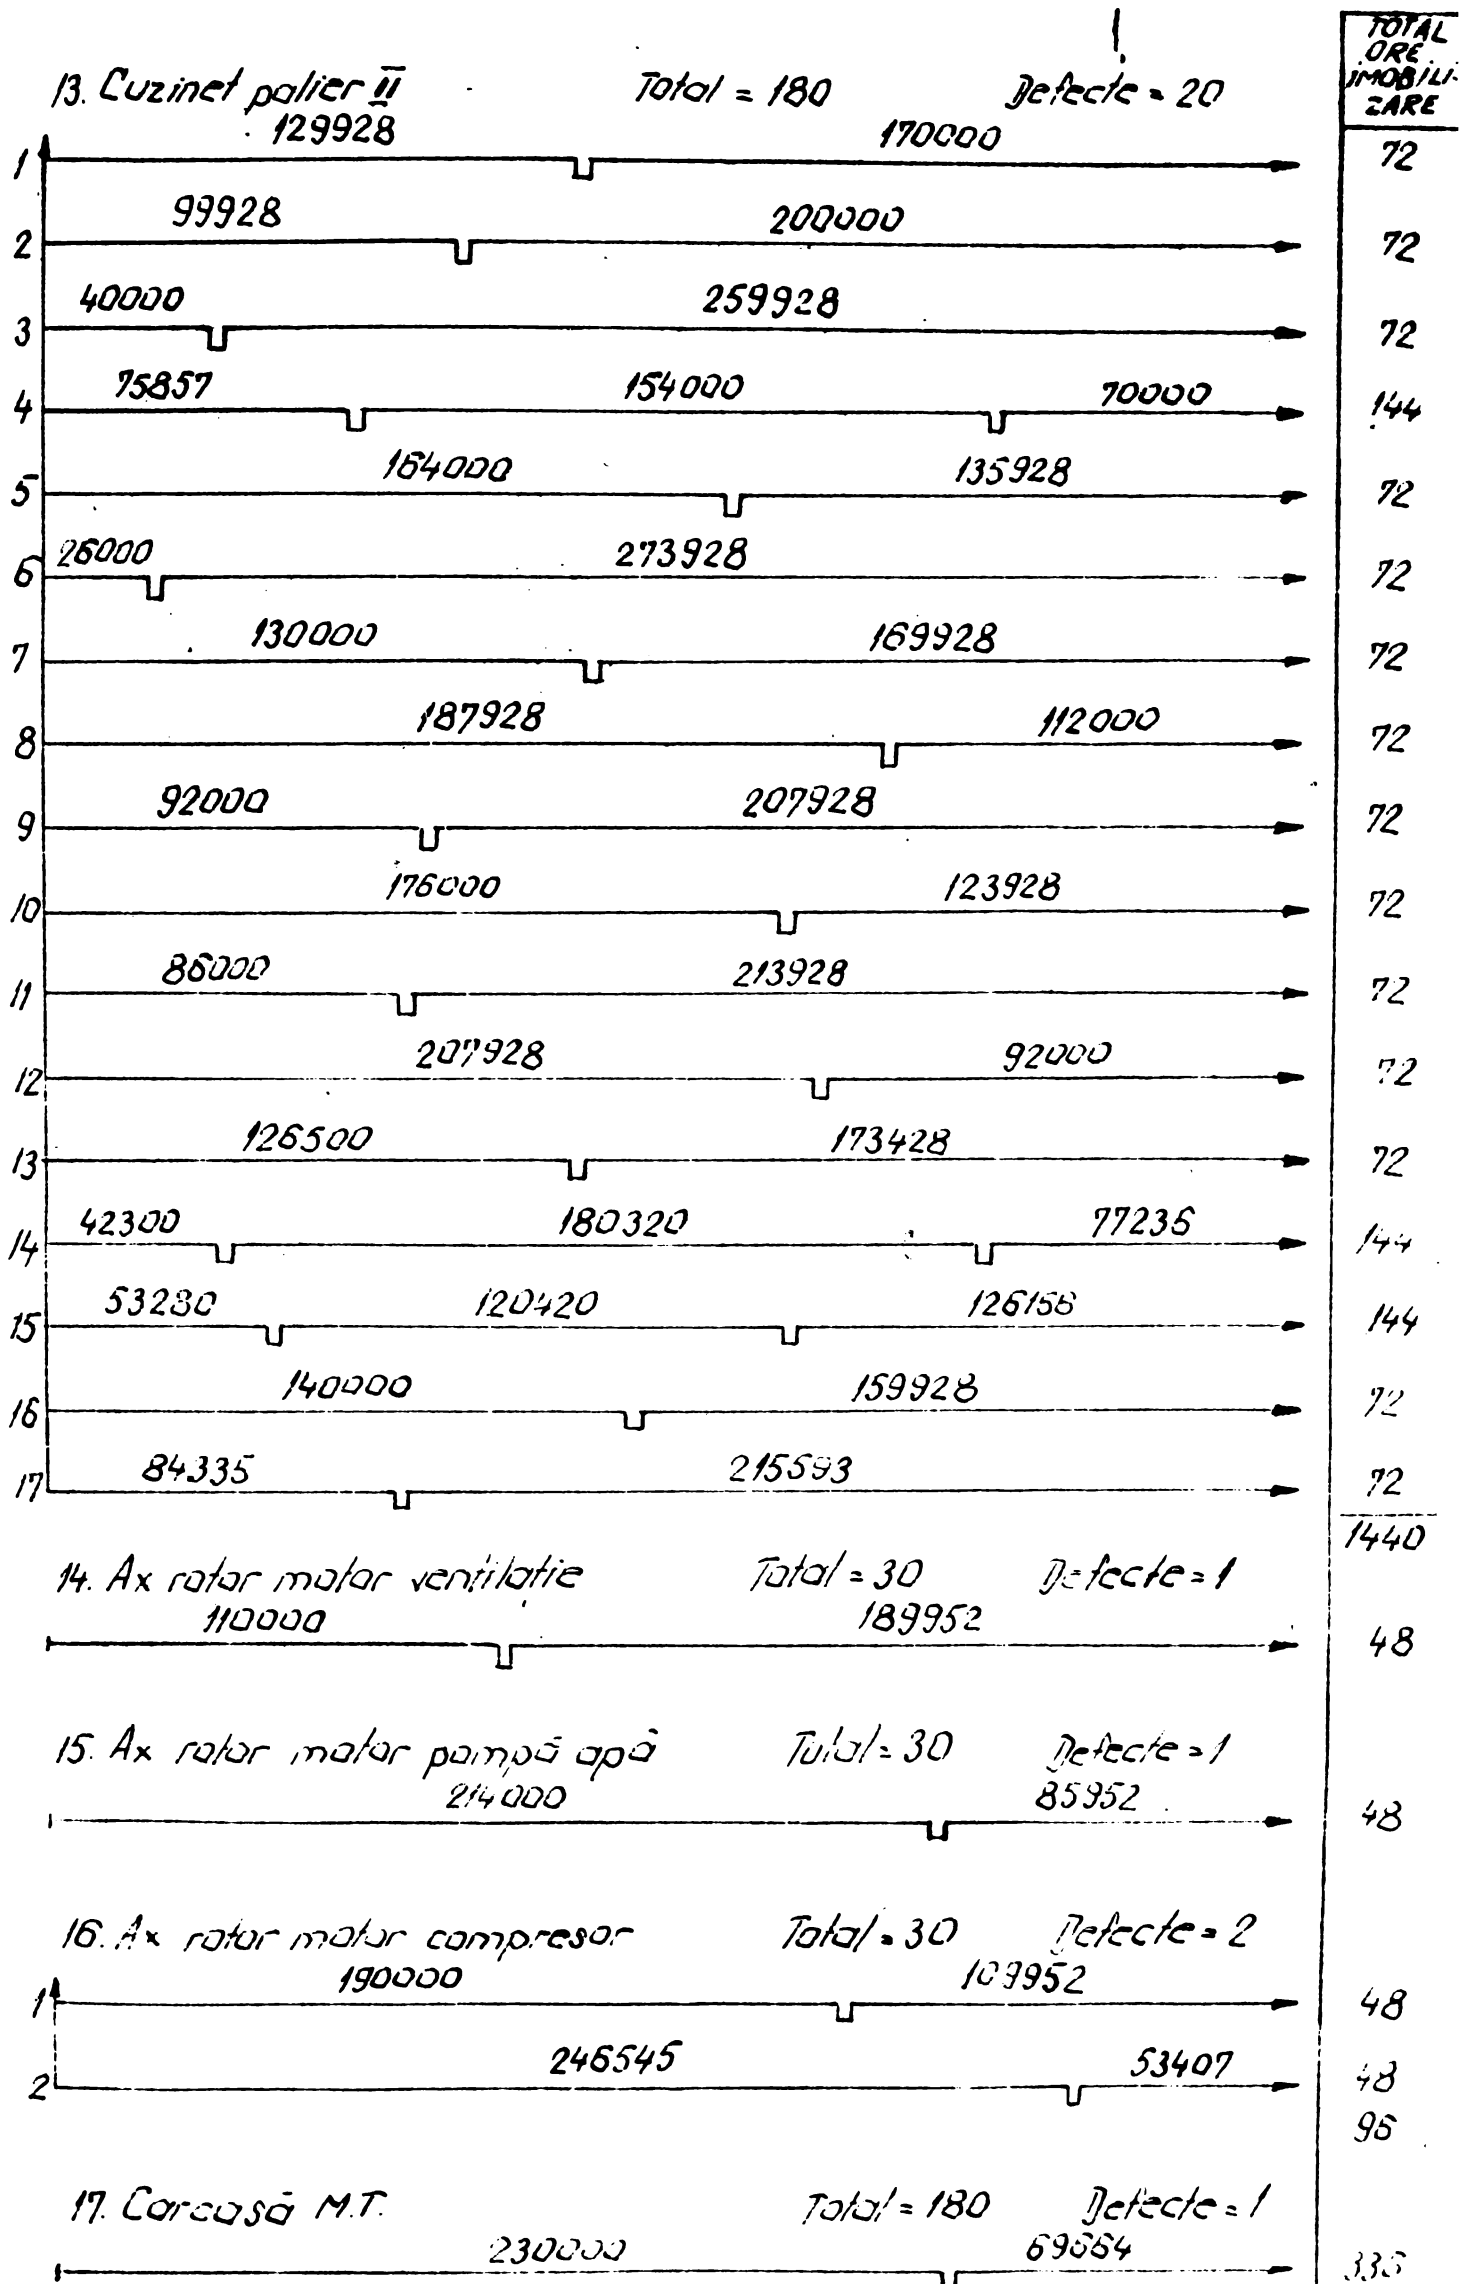 TOTAL
ORE
IMOBILI-
ZARE
13. Cuzinet palier II Total = 180 Defecte = 20
129928 170000
1 72
99928 200000
2 72
40000 259928
3 72
75857 154000 70000
4 144
164000 135928
5 72
26000 273928
6 72
130000 169928
7 72
187928 112000
8 72
92000 207928
9 72
176000 123928
10 72
86000 213928
11 72
207928 92000
12 72
126500 173428
13 72
42300 180320 77236
14 144
53280 120420 126156
15 144
140000 159928
16 72
84335 215593
17 72
1440
14. Ax rotor motor ventilatie Total = 30 Defecte = 1
110000 189952
48
15. Ax rotor motor pompă apă Total = 30 Defecte = 1
214000 85952
48
16. Ax rotor motor compresor Total = 30 Defecte = 2
190000 109952
1 48
246545 53407
2 48
96
17. Carcasă M.T. Total = 180 Defecte = 1
230000 69664
336